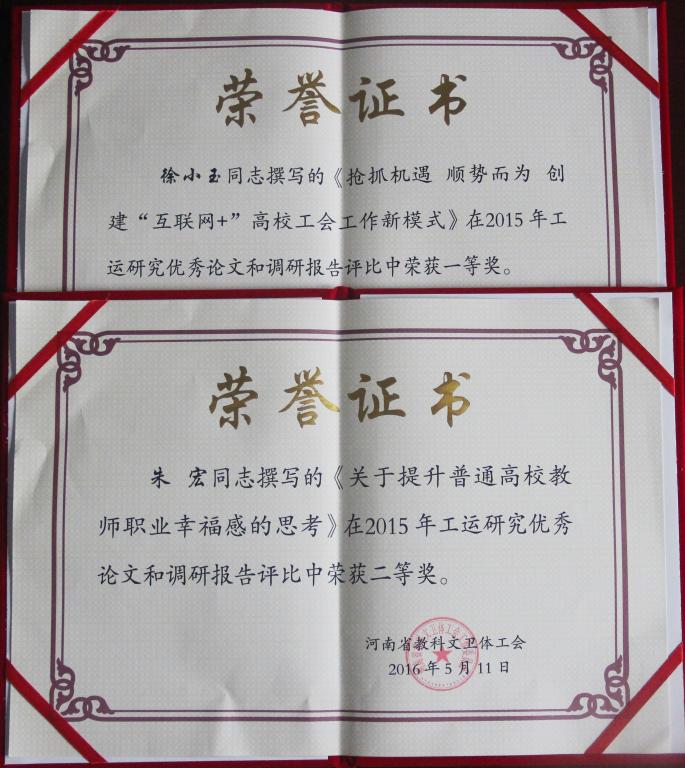 荣誉证书
徐小玉同志撰写的《抢抓机遇 顺势而为 创
建“互联网+”高校工会工作新模式》在2015年工
运研究优秀论文和调研报告评比中荣获一等奖。
荣誉证书
朱 宏同志撰写的《关于提升普通高校教
师职业幸福感的思考》在2015年工运研究优秀
论文和调研报告评比中荣获二等奖。
河南省教科文卫体工会
2016年5月11日